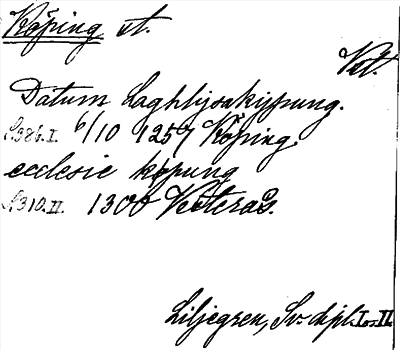 Köping st.
Vstl.
Datum Laghlysakypung.
S.386.I. 6/10 1257 Köping.
ecclesie køpung
S.310.II. 1300 Vesterås.
Liljegren, Sv. dipl. I o. II.